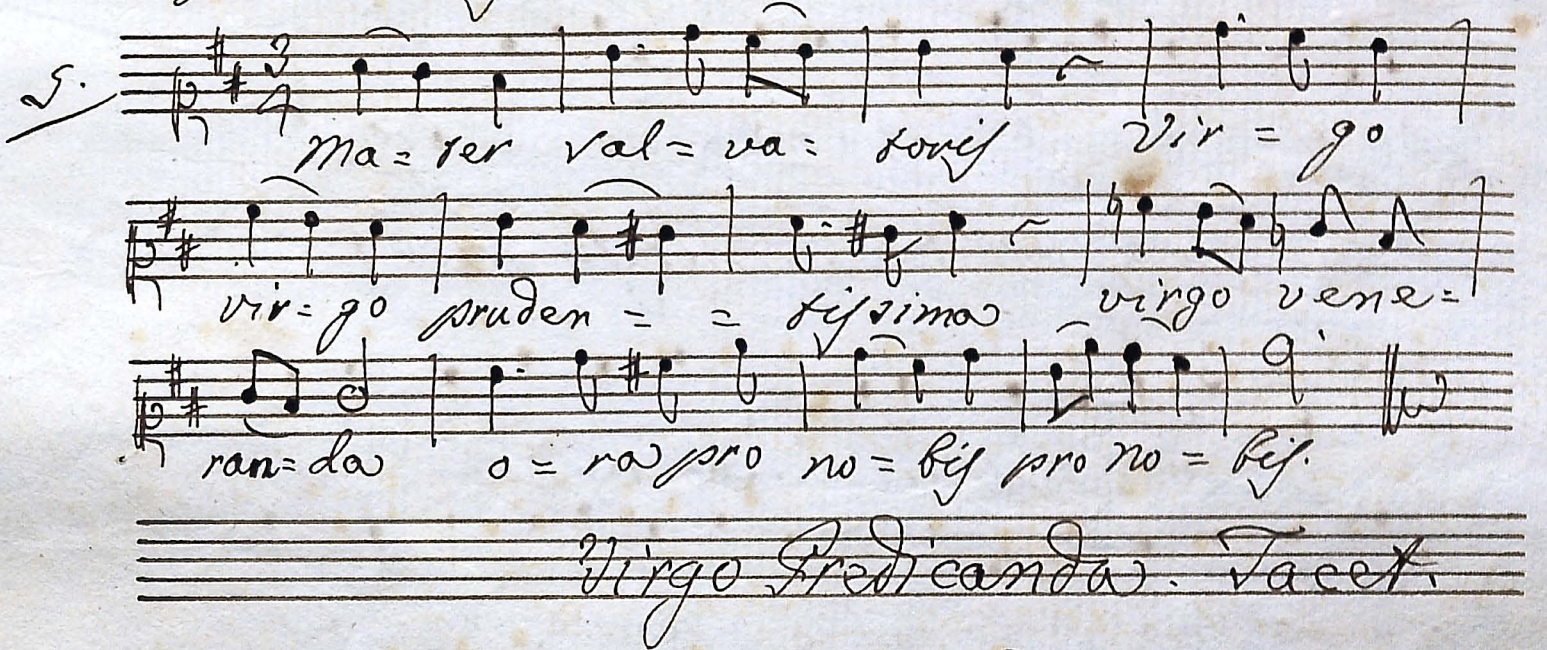 5.
3
4
Ma=ter Sal=va= toris Vir = go
vir=go pruden = = tissima virgo vene=
ran=da o=ra pro no=bis pro no=bis.
Virgo Predicanda. Tacet.